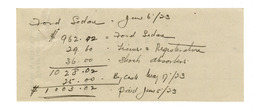 Ford Sedan - June 5/23
$ 962.02 - Ford Sedan
29.60 License & Registration
36.00 Shock absorbers
1028.02
25.00 By cash May 9/23
$ 1003.02 Paid June 5/23